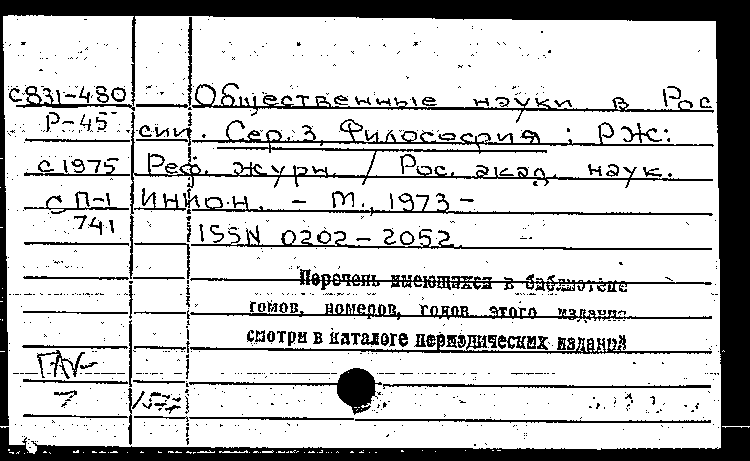 С831-480 Общественные науки в Рос
Р-45 сии. Сер. 3, Философия : РЖ:
с 1975 Реф. журн. / Рос. акад. наук.
С П-1 ИНИОН. - М., 1973 -
741 ISSN 0202-2052
Перечень имеющихся в библиотеке
томов, номеров, годов этого издания
смотри в каталоге периодических изданий
7